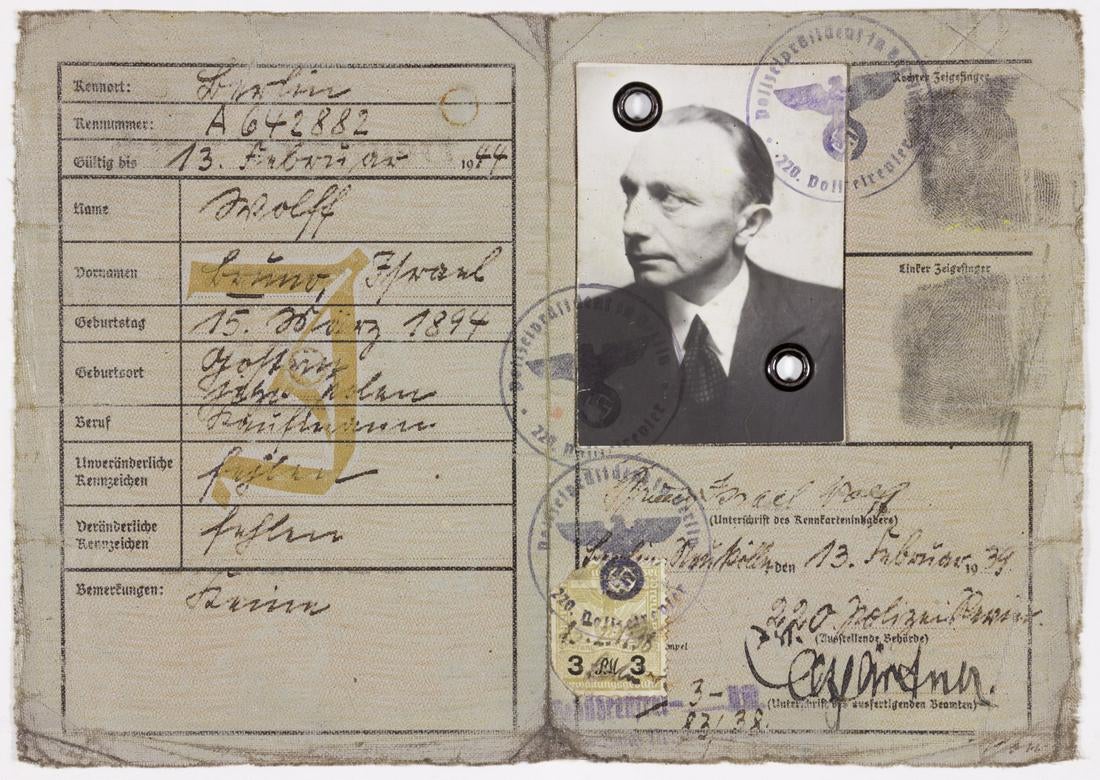 Kennort: Berlin
Kennnummer: A 642882
Gültig bis 13. Februar 1944
Name Wolff
Vornamen Bruno, Israel
Geburtstag 15. März 1894
Geburtsort
Beruf Kaufmann
Unveränderliche Kennzeichen fehlen
Veränderliche Kennzeichen fehlen
Bemerkungen: Keine
J
Polizeipräsident in Berlin
220. Polizeirevier
Rechter Zeigefinger
Linker Zeigefinger
Polizeipräsident in Berlin
220. Polizeirevier
Bruno Israel Wolff
(Unterschrift des Kennkarteninhabers)
Berlin Neukölln, den 13. Februar 1939.
220 Polizei Revier.
(Ausstellende Behörde)
Gärtner.
(Unterschrift des ausfertigenden Beamten)
Polizeipräsident in Berlin
220. Polizeirevier
3 RM 3
3- RM